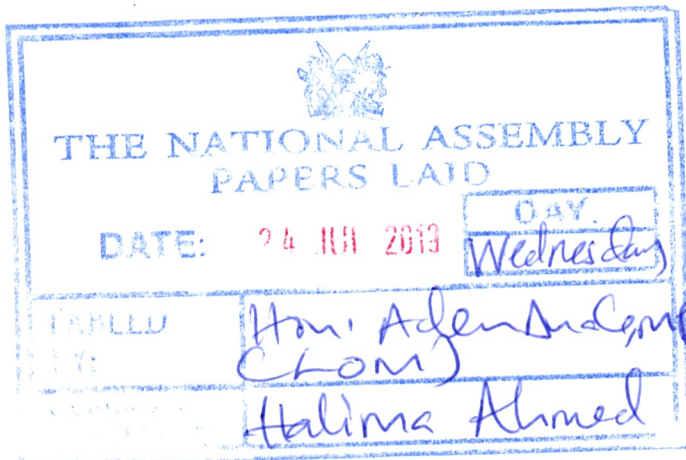 THE NATIONAL ASSEMBLY
PAPERS LAID
DATE: 24 JUL 2019
DAY.
Wednesday
TABLED
BY:
Hon. Aden
(LOM)
Halima Ahmed